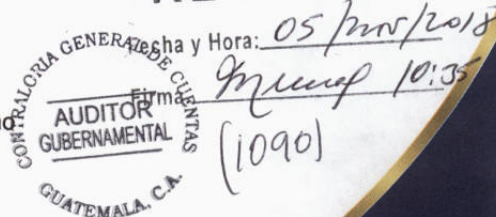 Fecha y Hora: 05/nov/2018
Firma 10:35
CONTRALORIA GENERAL DE CUENTAS
AUDITOR
GUBERNAMENTAL
GUATEMALA, C.A.
(1090)